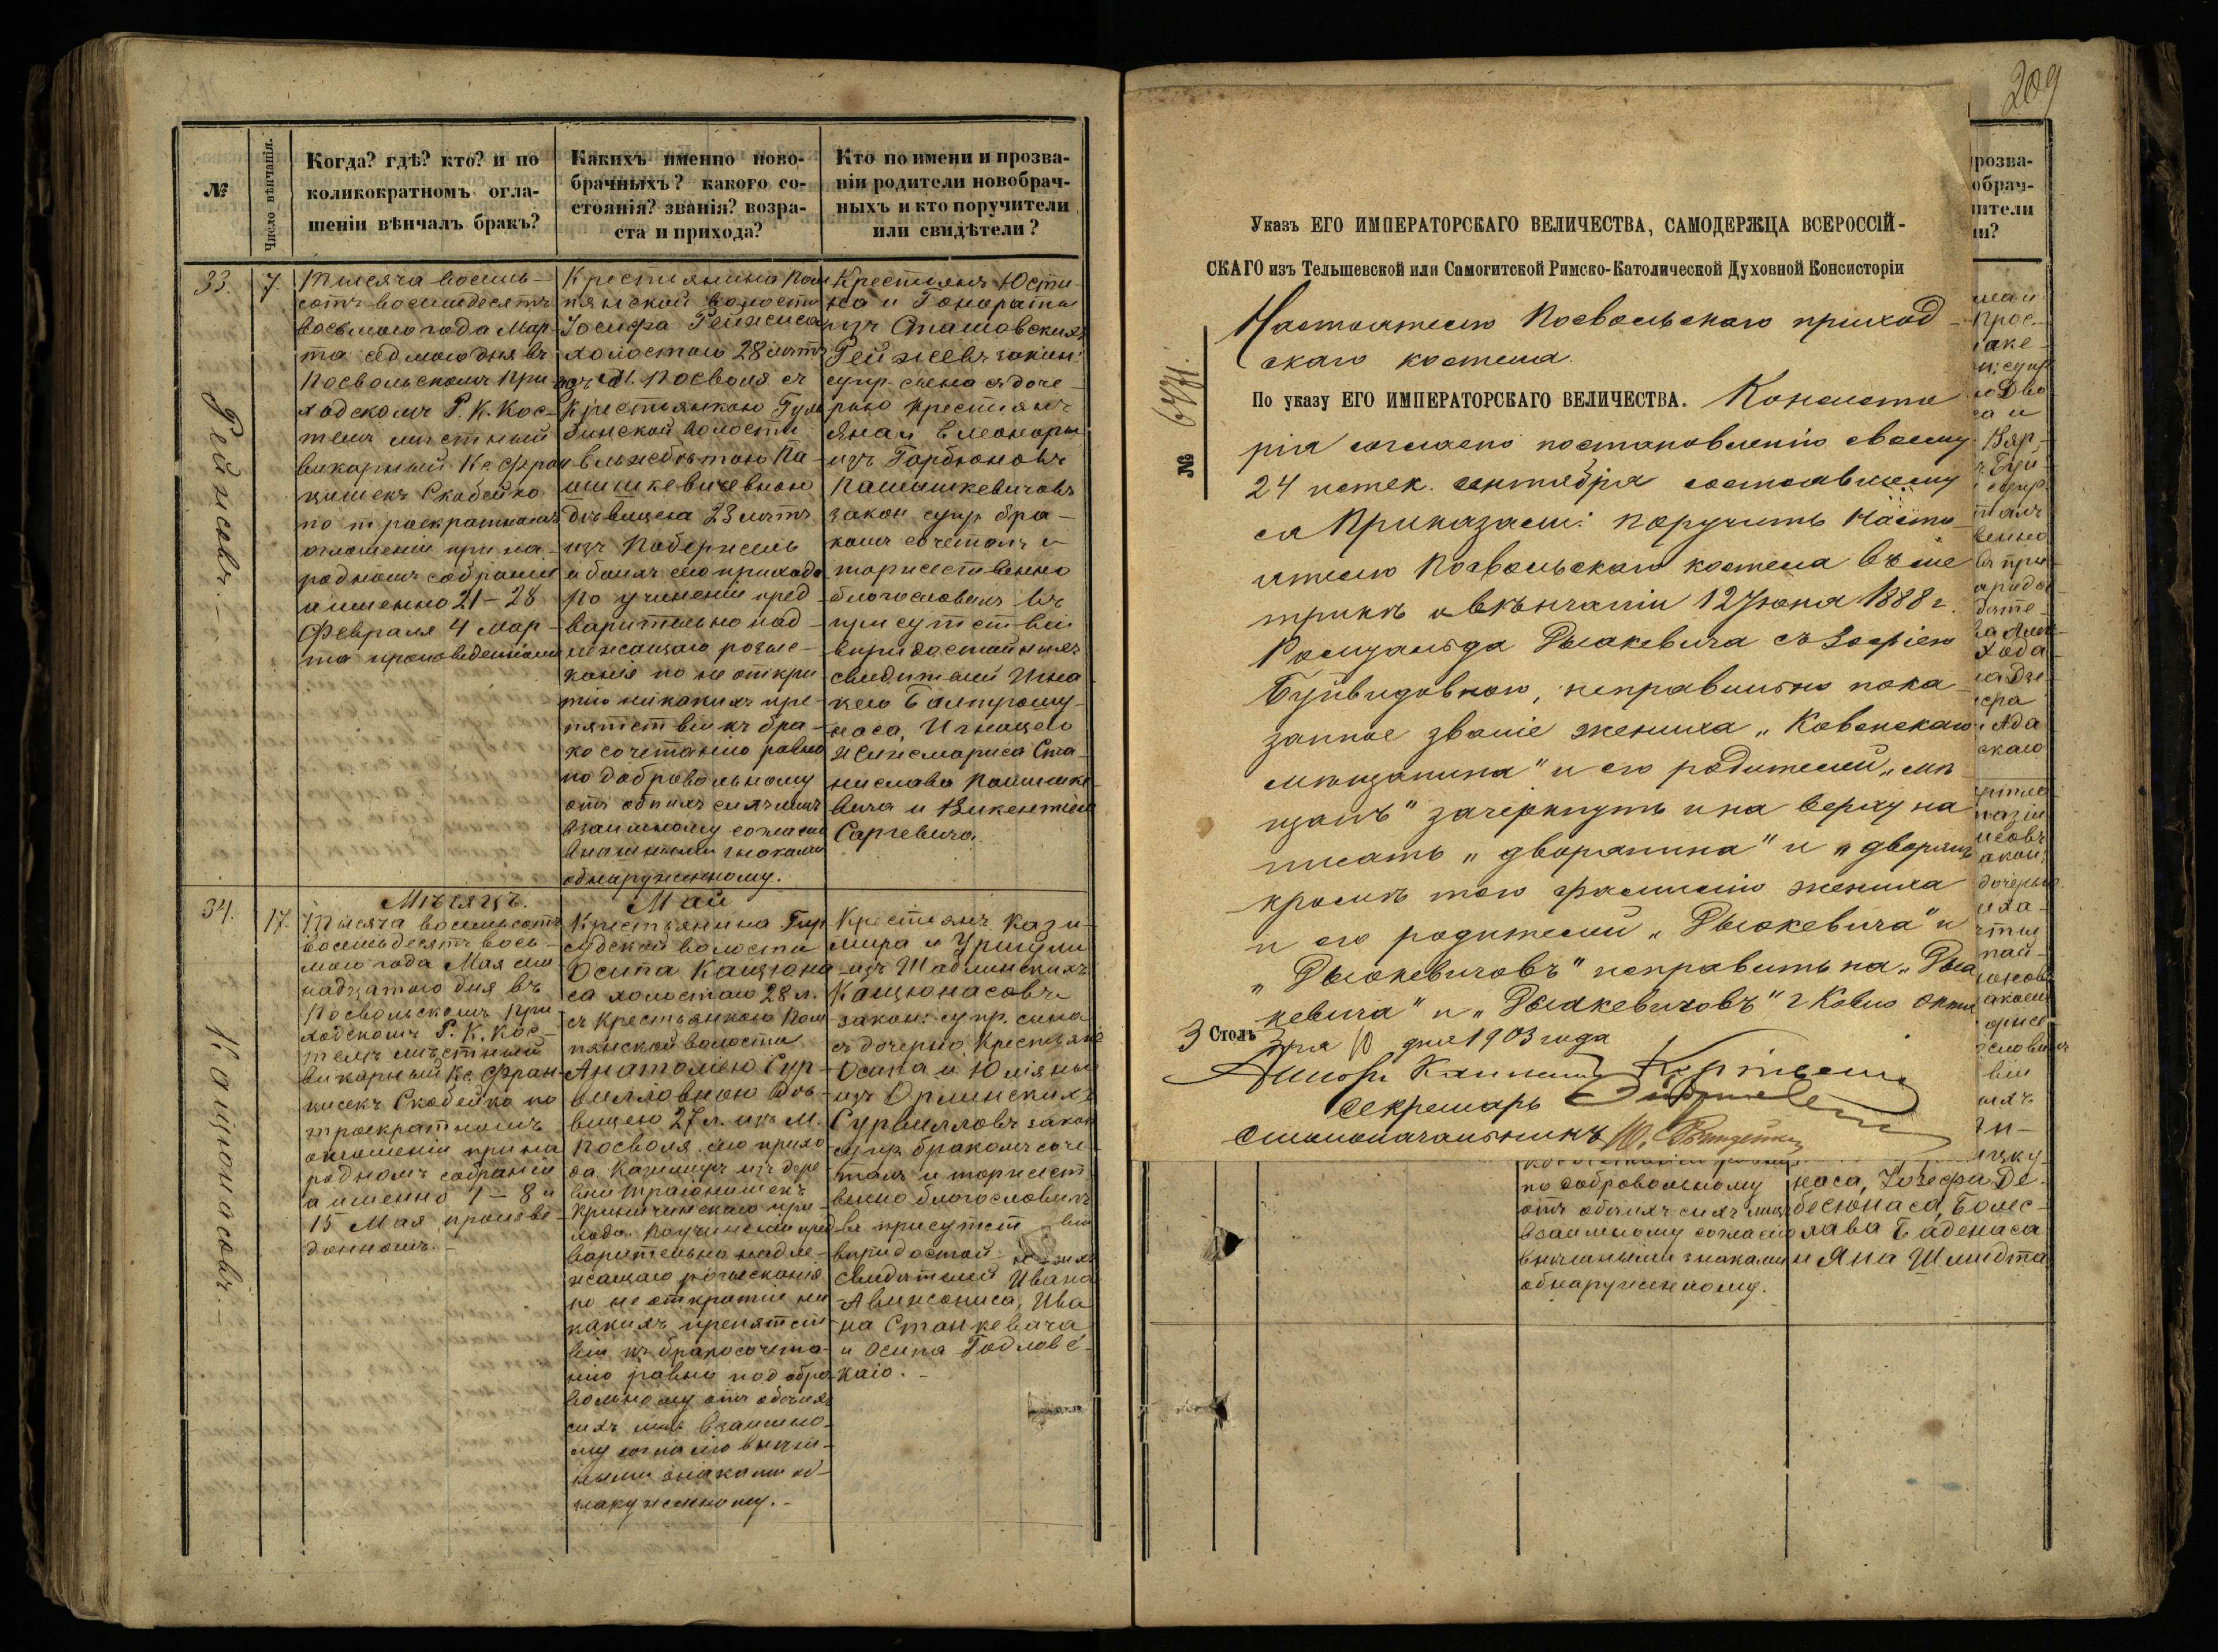 №
Число вѣнчанія.
Когда? гдѣ? кто? и по
коликократномъ огла-
шеніи вѣнчалъ бракъ?
Какихъ именно ново-
брачныхъ? какого со-
стоянія? званія? возра-
ста и прихода?
Кто по имени и прозва-
ніи родители новобрач-
ныхъ и кто поручители
или свидѣтели?
33.
Рейжисовъ.
7.
Тысяча восемь-
сотъ восемьдесятъ
восьмого года Мар-
та седьмого дня въ
Посвольскомъ При-
ходскомъ Р. К. Кос-
телѣ мѣстный
викарный Кс. Фран
цишекъ Скобейко
по троекратномъ
оглашеніи при на-
родномъ собраніи
а именно 21-28
Февраля 4 Мар-
та произведенномъ
Крестьянина Пом
пянской волости
Іосифа Рейжиса
холостого 28 лѣтъ
изъ М. Посволя съ
Крестьянкою Гум
бинской волости
Эльжбѣтою Па-
шишкевичевною
Дѣвицею 23 лѣтъ
изъ
обоихъ сего прихода
по учиненіи пред-
варительно над-
лежащаго розыс-
канія по не откры
тію никакихъ пре-
пятствій къ бра-
косочетанію равно
по добровольному
отъ обоихъ сихъ лицъ
взаимному согласію
внѣшними знаками
обнаруженному.
Крестьянъ Юсти-
на и Гонораты
изъ Сташовскихъ
Рейжисовъ закон:
супр. сына съ доче-
рью Крестьянъ
Яна и Элеоноры
изъ Горбоновъ
Пашишкевичовъ
закон супр. бра-
комъ сочеталъ и
торжественно
благословилъ въ
присутствіи
вѣридостойныхъ
свидѣтелей Игна
цего Балтрошу-
наса, Игнацего
Ста-
нислава Пашишке-
вича и Викентего
Саргевича.
Мѣсяцъ. Май
34.
Кацюнасовъ.
17.
Тысяча восемьсотъ
восемьдесятъ вось-
мого года Мая сем-
надцатого дня въ
Посвольскомъ При
ходскомъ Р. К. Кос-
телѣ мѣстный
викарный Кс. Фран-
цишекъ Скобейко по
троекратномъ
оглашеніи при на
родномъ собраніи
а именно 1-8 и
15 Мая произве-
денномъ.
Крестьянина Гир
судской волости
Осипа Кацюна
са холостого 28 л.
съ Крестьянкою Пом
пянской волости
Анатоліею Сур-
вилловною Дѣ-
вицею 27 л. изъ М.
Посволя сего прихо
да. Казимиръ изъ дере
вни Трагонишекъ
Криничинскаго при-
хода. По учиненіи пред
варительно надле-
жащаго розысканія
по не открытіи ни
какихъ препятст
вій къ бракосочета-
нію равно по добро
вольному отъ обоихъ
сихъ лицъ взаимно-
му согласію внѣш-
ными знаками об-
наруженному.
Крестьянъ Кази-
мира и Уршули
изъ Шадлинскихъ
Кацюнасовъ
закон: супр. сына
съ дочерью Крестьянъ
Осипа и Юліяны
изъ Орлинскихъ
Сурвилловъ закон
супр. бракомъ соче-
талъ и торжест
венно благословилъ
въ присутствіи
вѣридостойныхъ
свидѣтелей Ивана
Авижониса, Ива
на Станкевича
и Осипа Годлевс-
каго.
209
Указъ ЕГО ИМПЕРАТОРСКАГО ВЕЛИЧЕСТВА, САМОДЕРЖЦА ВСЕРОССІЙ-
СКАГО изъ Тельшевской или Самогитской Римско-Католической Духовной Консисторіи
Настоятелю Посвольскаго приход-
скаго костела.
По указу ЕГО ИМПЕРАТОРСКАГО ВЕЛИЧЕСТВА. Консисто
№ 6771.
рія согласно постановленію своему
24 истек. сентября состоявшему
ся Приказали: поручить Насто-
ятелю Посвольскаго костела въ ме
трикѣ о вѣнчаніи 12 Іюня 1888 г.
Ромуальда Дылкевича съ Зофіею
Буйвидовною, неправильно пока-
занное званіе жениха „Ковенскаго
мѣщанина" и его родителей „мѣ-
щанъ" зачеркнуть и на верху на
писать „дворянина" и „дворянъ
кромѣ того фамилію жениха
и его родителей „Дыокевича" и
„Дыокевичовъ" исправить на „Дыл
кевича" и „Дылкевичовъ" г Ковно Октя
3 Столъ бря 10 дня 1903 года
Секретарь
Столоначальникъ
розва-
обрач-
ители
ли?
по добровольному
отъ обоихъ сихъ лицъ
взаимному согласію
внѣшными знаками
обнаруженному.
наса, Іозефа Де-
бесюнаса, Болес-
лава Баденаса
и Яна Шмидта